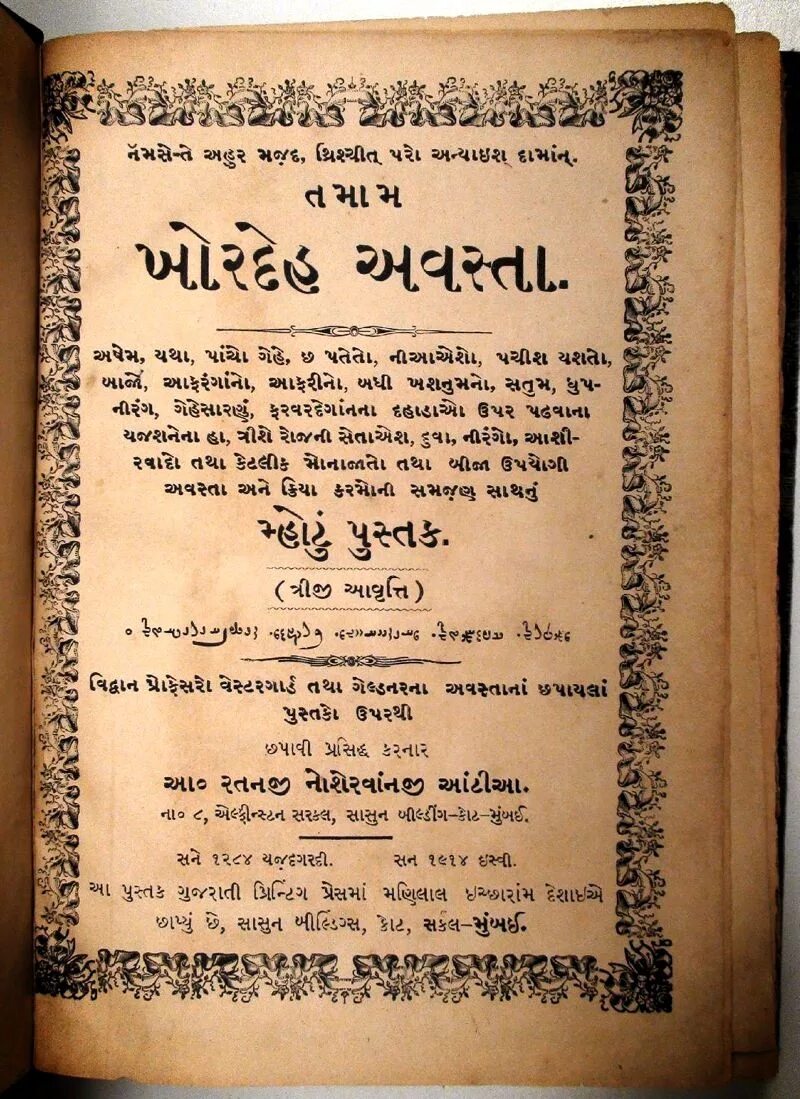 નૅમસેન્તે અહુર મજ઼દ, થ્રિશ્ચીત્ પરો અન્યાઇશ્ દામાંન્.
તમામ
ખોરદેહ અવસ્તા.
અષેમ, યથા, પાંચો ગેહે, છ પતેતો, નીઆએશો, પચીશ યશતો,
બાજો, આફરંગાંનો, આફરીનો, બધી ખશનુમનો, સતુમ, ધુપ-
નીરંગ, ગેહેસારણું, ફરવરદેગાંનના દહાડાઓ ઉપર પઢવાના
યજશનેના હા, ત્રીશે રોજની સેતાએશ, દુવા, નીરંગો, આશી-
રવાદો તથા કેટલીક મોનાજાતો તથા બીજા ઉપયોગી
અવસ્તા અને ક્રિયા કરમોની સમજણ સાથનું
મ્હોટું પુસ્તક.
(ત્રીજી આવૃત્તિ)
વિદ્વાન પ્રોફેસરો વેસ્ટરગાર્ડ તથા ગેલ્ડનરના અવસ્તાનાં છપાયલાં
પુસ્તકો ઉપરથી
છપાવી પ્રસિદ્ધ કરનાર
આ૦ રતનજી નોશેરવાંનજી આંટીઆ.
ના૦ ૮, એલ્ફીન્સ્ટન સરકલ, સાસુન બીલ્ડીંગ-કોટ-મુંબઈ.
સને ૧૨૮૪ યજ઼દગરદી. સન ૧૯૧૪ ઇસ્વી.
આ પુસ્તક ગુજરાતી પ્રિન્ટિંગ પ્રેસમાં મણિલાલ ઇચ્છારામ દેશાઇએ
છાપ્યું છે, સાસુન બીલ્ડિંગ્સ, કોટ, સર્કલ-મુંબઈ.